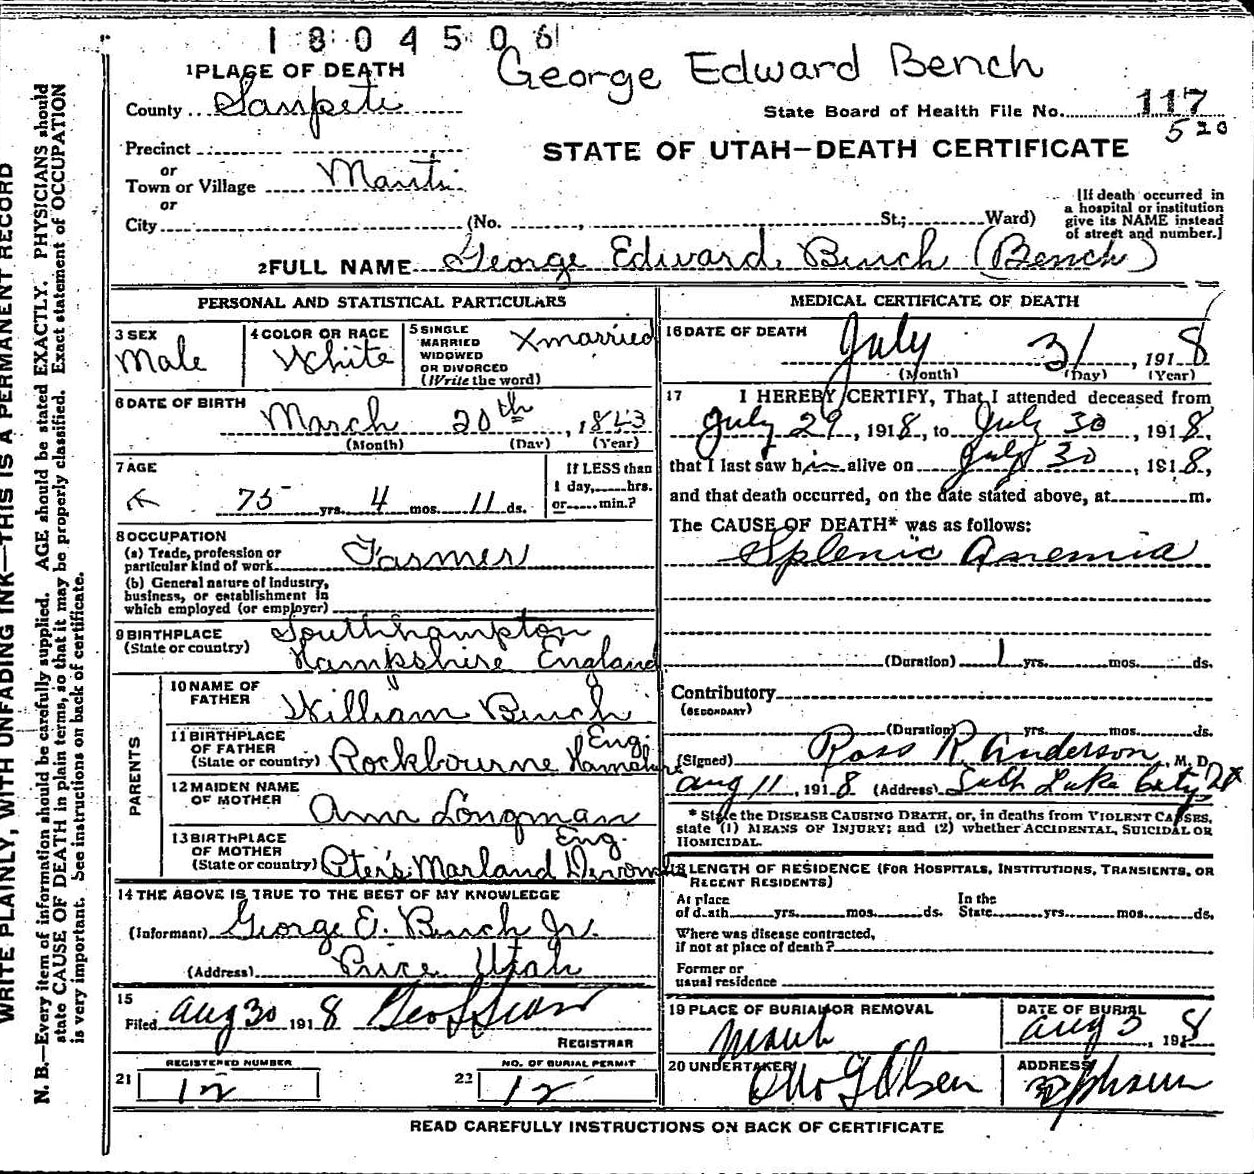 1804506
George Edward Bench
1 PLACE OF DEATH
County Sanpete
State Board of Health File No. 117
520
Precinct
or
Town or Village Manti
or
City (No. St.; Ward)
STATE OF UTAH—DEATH CERTIFICATE
[If death occurred in
a hospital or institution
give its NAME instead
of street and number.]
2 FULL NAME George Edward Bench (Bench)
PERSONAL AND STATISTICAL PARTICULARS
3 SEX
Male
4 COLOR OR RACE
White
5 SINGLE
MARRIED
WIDOWED
OR DIVORCED
(Write the word)
X married
6 DATE OF BIRTH
March 20th, 1843
(Month) (Day) (Year)
7 AGE
75 yrs. 4 mos. 11 ds.
If LESS than
1 day, hrs.
or min.?
8 OCCUPATION
(a) Trade, profession or
particular kind of work Farmer
(b) General nature of industry,
business, or establishment in
which employed (or employer)
9 BIRTHPLACE
(State or country)
Southhampton
Hampshire England
PARENTS
10 NAME OF
FATHER
William Bench
11 BIRTHPLACE
OF FATHER
(State or country)
Eng.
Rockbourne Hampshire
12 MAIDEN NAME
OF MOTHER
Ann Longman
13 BIRTHPLACE
OF MOTHER
(State or country)
Eng.
Peter's Marland
14 THE ABOVE IS TRUE TO THE BEST OF MY KNOWLEDGE
(Informant) George E. Bench Jr.
(Address) Price Utah
15
Filed Aug 30 1918
REGISTRAR
21 REGISTERED NUMBER
12
22 NO. OF BURIAL PERMIT
12
MEDICAL CERTIFICATE OF DEATH
16 DATE OF DEATH
July 31, 1918
(Month) (Day) (Year)
17 I HEREBY CERTIFY, That I attended deceased from
July 29, 1918, to July 30, 1918,
that I last saw him alive on July 30, 1918,
and that death occurred, on the date stated above, at m.
The CAUSE OF DEATH* was as follows:
Splenic Anemia
(Duration) 1 yrs. mos. ds.
Contributory
(SECONDARY)
(Duration) yrs. mos. ds.
(Signed) Ross R. Anderson, M. D.
Aug 11, 1918 (Address) Salt Lake City
* State the DISEASE CAUSING DEATH, or, in deaths from VIOLENT CAUSES,
state (1) MEANS OF INJURY; and (2) whether ACCIDENTAL, SUICIDAL OR
HOMICIDAL.
18 LENGTH OF RESIDENCE (FOR HOSPITALS, INSTITUTIONS, TRANSIENTS, OR
RECENT RESIDENTS)
At place
of death yrs. mos. ds.
In the
State yrs. mos. ds.
Where was disease contracted,
if not at place of death?
Former or
usual residence
19 PLACE OF BURIAL OR REMOVAL
Manti
DATE OF BURIAL
Aug 3, 1918
20 UNDERTAKER
Olsen
ADDRESS
Ephraim
READ CAREFULLY INSTRUCTIONS ON BACK OF CERTIFICATE
WRITE PLAINLY, WITH UNFADING INK—THIS IS A PERMANENT RECORD
N. B.—Every item of information should be carefully supplied. AGE should be stated EXACTLY. PHYSICIANS should
state CAUSE OF DEATH in plain terms, so that it may be properly classified. Exact statement of OCCUPATION
is very important. See instructions on back of certificate.